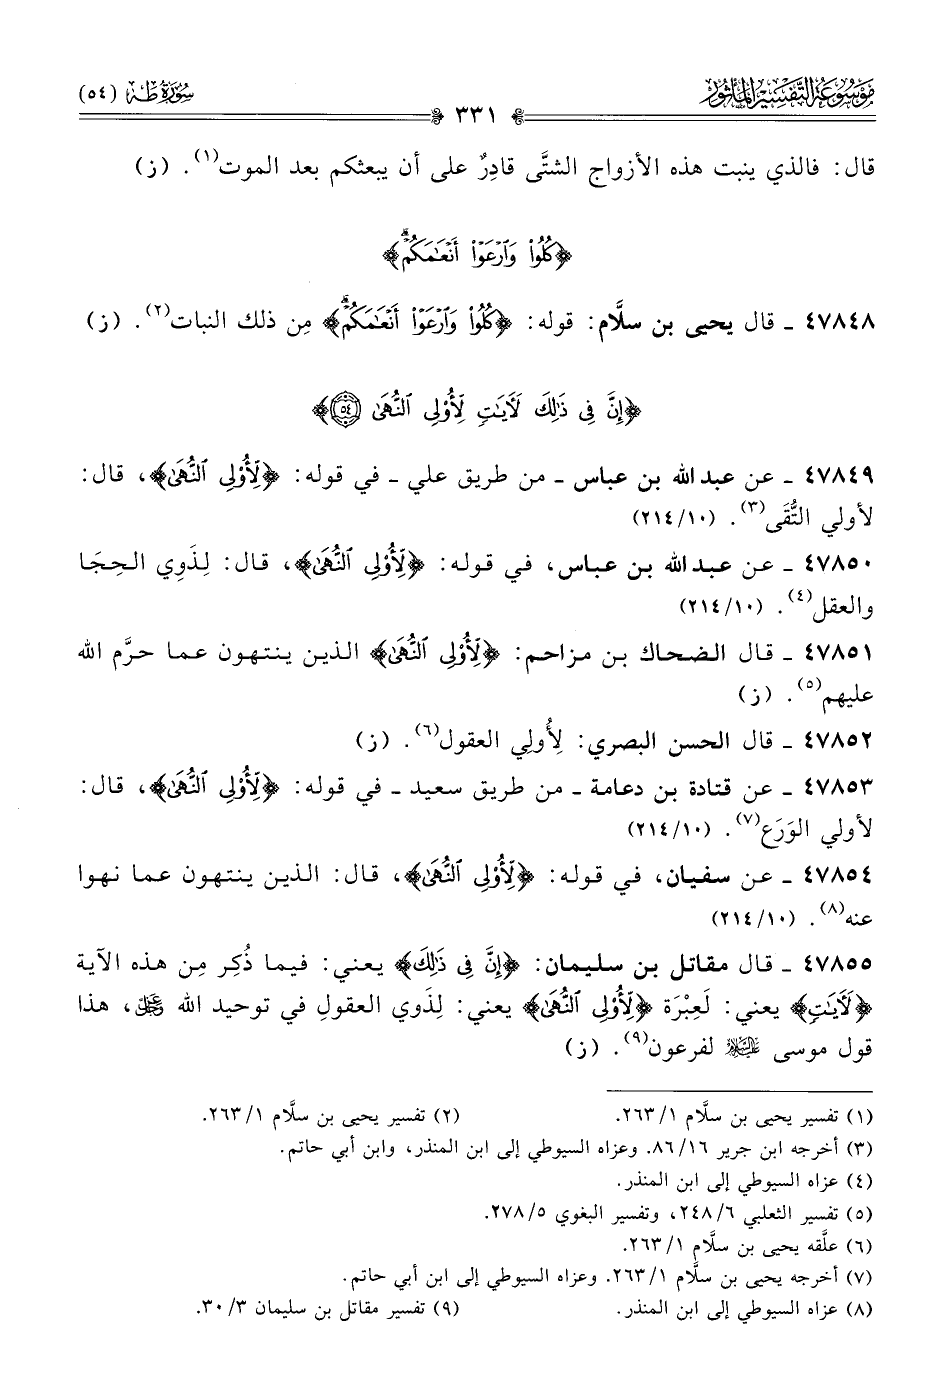 مَوْسُوعَة التَّفْسِير المَأثُور
سُورَة طه (٥٤)
٣٣١
قال: فالذي ينبت هذه الأزواج الشتَّى قادِرٌ على أن يبعثكم بعد الموت(١). (ز)
﴿كُلُوا۟ وَٱرْعَوْا۟ أَنْعَـٰمَكُمْ ۗ﴾
٤٧٨٤٨ ـ قال يحيى بن سلَّام: قوله: ﴿كُلُوا۟ وَٱرْعَوْا۟ أَنْعَـٰمَكُمْ ۗ﴾ مِن ذلك النبات(٢). (ز)
﴿إِنَّ فِى ذَٰلِكَ لَـَٔايَـٰتٍ لِّأُو۟لِى ٱلنُّهَىٰ ٥٤﴾
٤٧٨٤٩ ـ عن عبد الله بن عباس ـ من طريق علي ـ في قوله: ﴿لِّأُو۟لِى ٱلنُّهَىٰ﴾، قال:
لأولي التُّقَى(٣). (٢١٤/١٠)
٤٧٨٥٠ ـ عن عبد الله بن عباس، في قوله: ﴿لِّأُو۟لِى ٱلنُّهَىٰ﴾، قال: لِذَوِي الحِجَا
والعقل(٤). (٢١٤/١٠)
٤٧٨٥١ ـ قال الضحاك بن مزاحم: ﴿لِّأُو۟لِى ٱلنُّهَىٰ﴾ الذين ينتهون عما حرَّم الله
عليهم(٥). (ز)
٤٧٨٥٢ ـ قال الحسن البصري: لِأُولِي العقول(٦). (ز)
٤٧٨٥٣ ـ عن قتادة بن دعامة ـ من طريق سعيد ـ في قوله: ﴿لِّأُو۟لِى ٱلنُّهَىٰ﴾، قال:
لأولي الوَرَع(٧). (٢١٤/١٠)
٤٧٨٥٤ ـ عن سفيان، في قوله: ﴿لِّأُو۟لِى ٱلنُّهَىٰ﴾، قال: الذين ينتهون عما نهوا
عنه(٨). (٢١٤/١٠)
٤٧٨٥٥ ـ قال مقاتل بن سليمان: ﴿إِنَّ فِى ذَٰلِكَ﴾ يعني: فيما ذُكِر مِن هذه الآية
﴿لَـَٔايَـٰتٍ﴾ يعني: لَعِبْرَة ﴿لِّأُو۟لِى ٱلنُّهَىٰ﴾ يعني: لِذَوي العقولِ في توحيد الله ﷿، هذا
قول موسى عليه السلام لفرعون(٩). (ز)
(١) تفسير يحيى بن سلَّام ١/ ٢٦٣. (٢) تفسير يحيى بن سلَّام ١/ ٢٦٣.
(٣) أخرجه ابن جرير ١٦/ ٨٦. وعزاه السيوطي إلى ابن المنذر، وابن أبي حاتم.
(٤) عزاه السيوطي إلى ابن المنذر.
(٥) تفسير الثعلبي ٦/ ٢٤٨، وتفسير البغوي ٥/ ٢٧٨.
(٦) علَّقه يحيى بن سلَّام ١/ ٢٦٣.
(٧) أخرجه يحيى بن سلَّام ١/ ٢٦٣. وعزاه السيوطي إلى ابن أبي حاتم.
(٨) عزاه السيوطي إلى ابن المنذر. (٩) تفسير مقاتل بن سليمان ٣/ ٣٠.